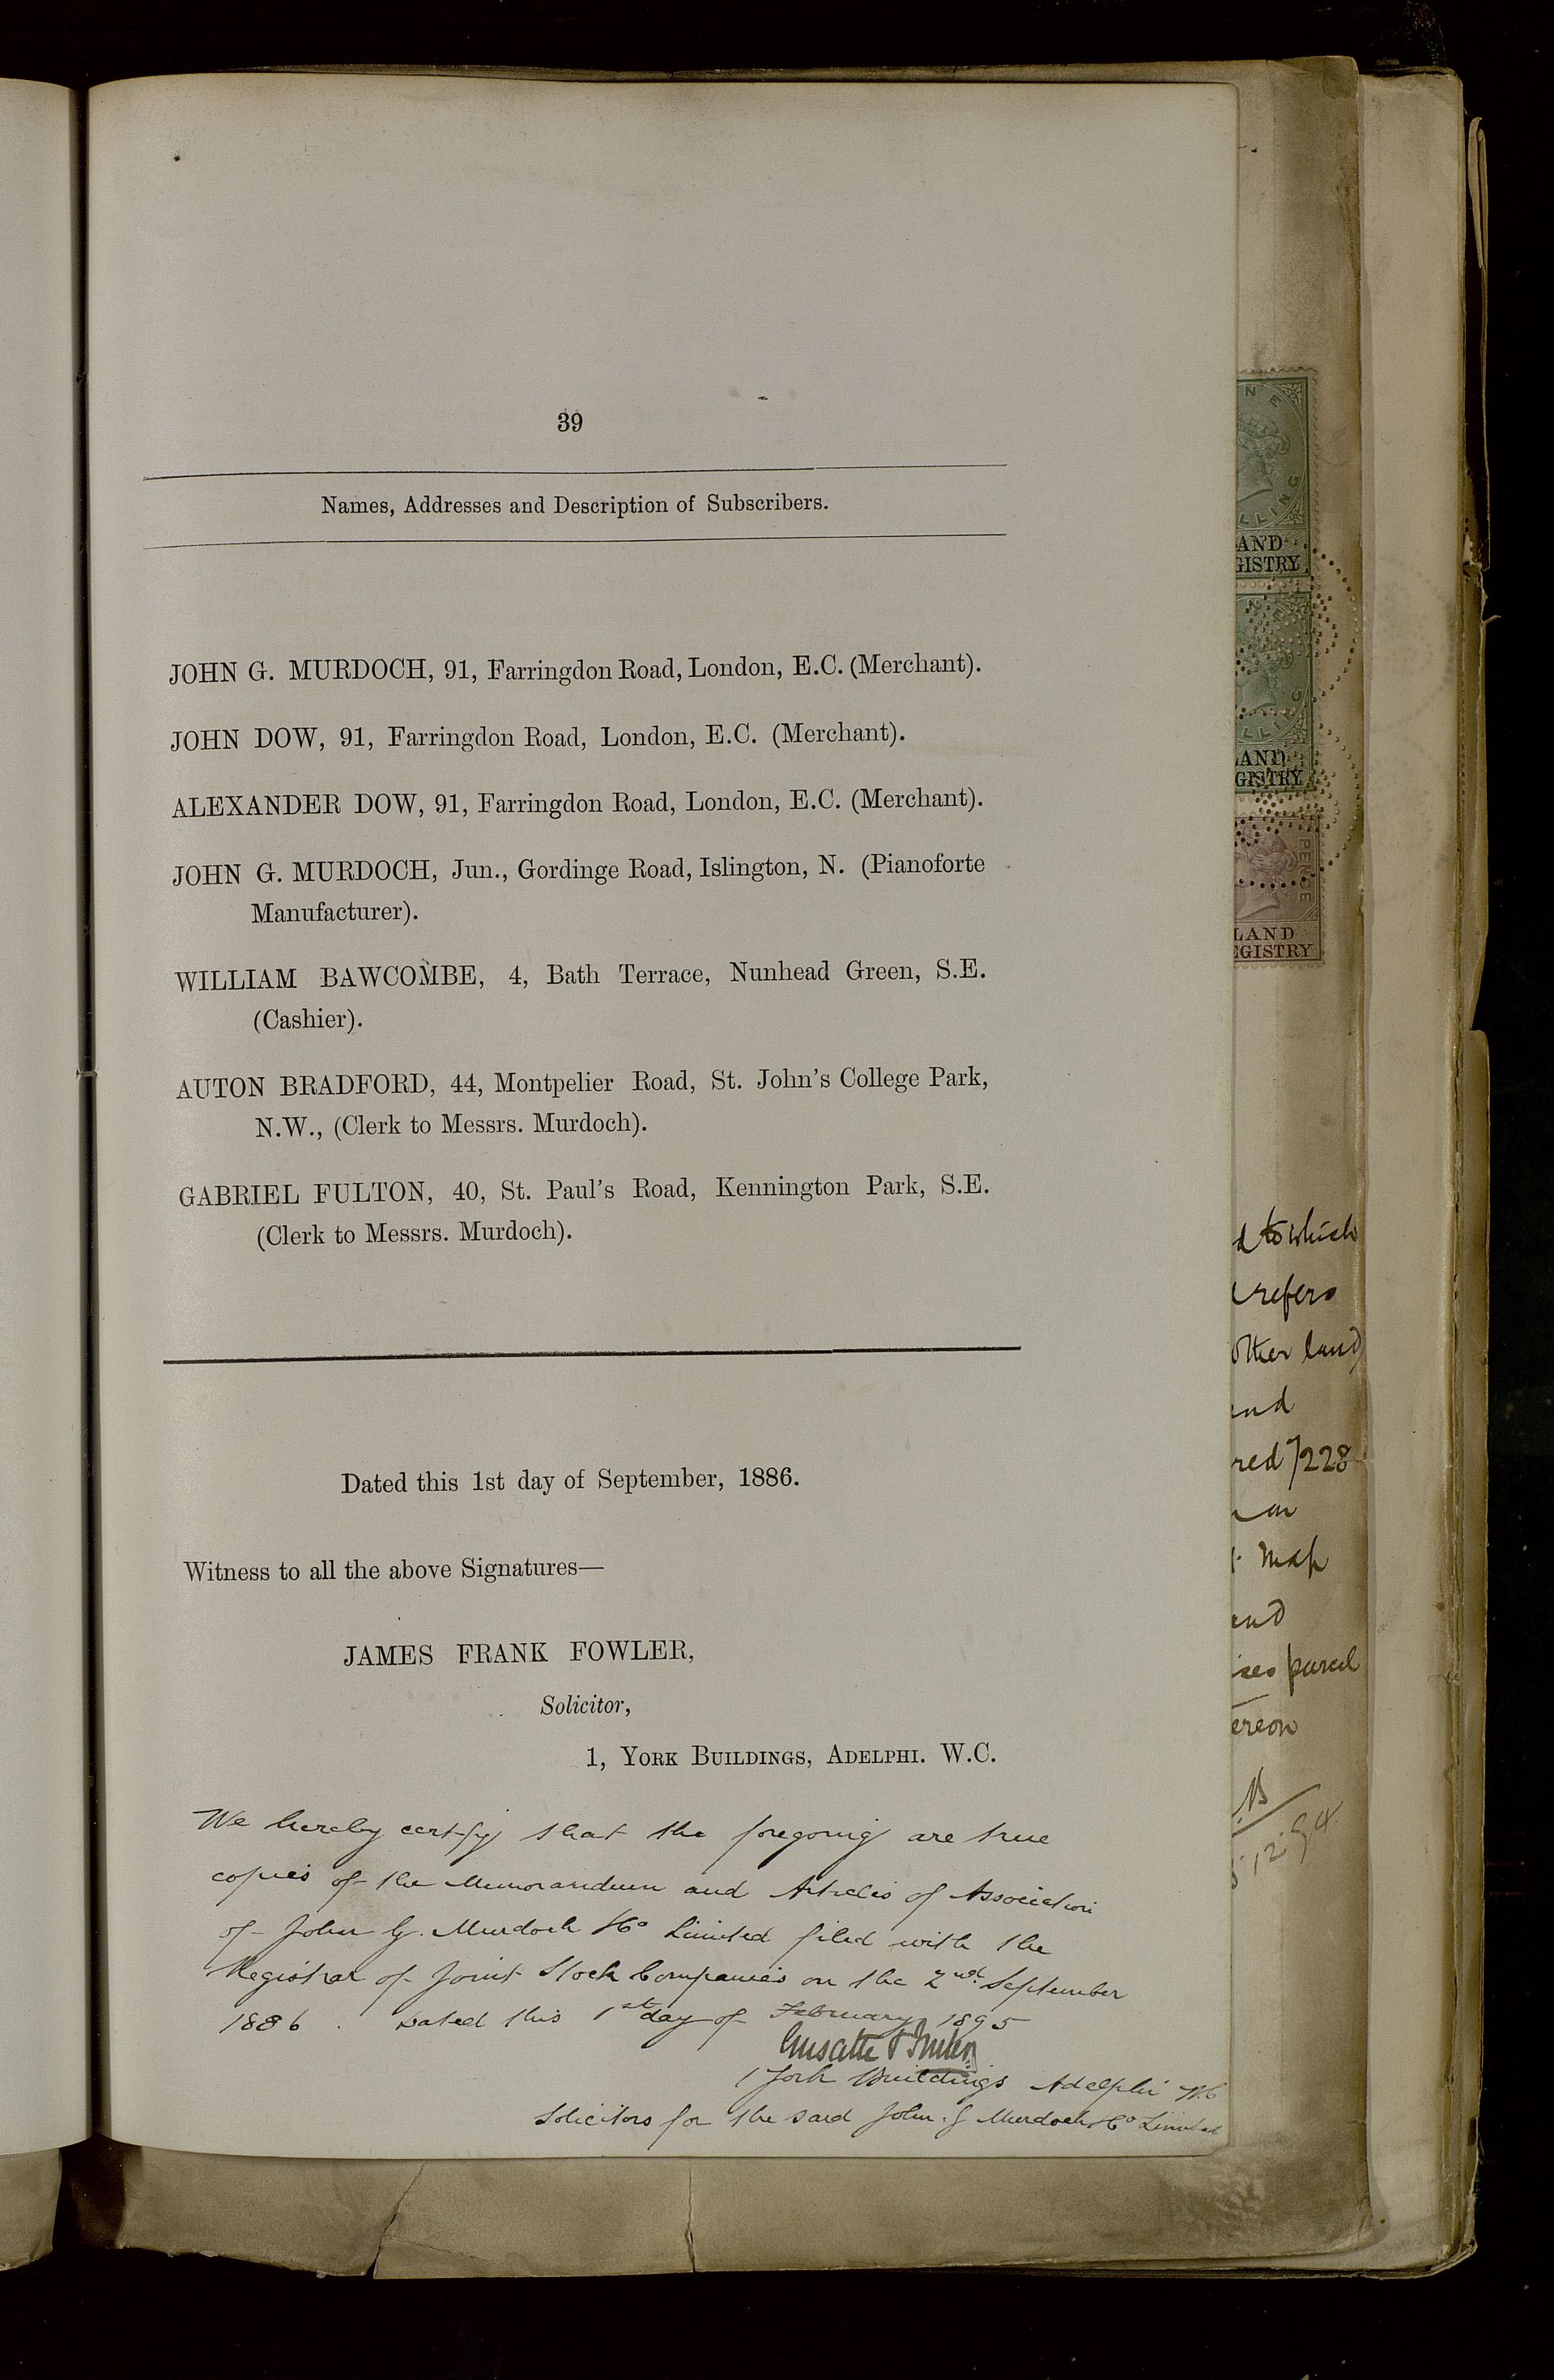 39
Names, Addresses and Description of Subscribers.
JOHN G. MURDOCH, 91, Farringdon Road, London, E.C. (Merchant).
JOHN DOW, 91, Farringdon Road, London, E.C. (Merchant).
ALEXANDER DOW, 91, Farringdon Road, London, E.C. (Merchant).
JOHN G. MURDOCH, Jun., Gordinge Road, Islington, N. (Pianoforte
Manufacturer).
WILLIAM BAWCOMBE, 4, Bath Terrace, Nunhead Green, S.E.
(Cashier).
AUTON BRADFORD, 44, Montpelier Road, St. John's College Park,
N.W., (Clerk to Messrs. Murdoch).
GABRIEL FULTON, 40, St. Paul's Road, Kennington Park, S.E.
(Clerk to Messrs. Murdoch).
Dated this 1st day of September, 1886.
Witness to all the above Signatures—
JAMES FRANK FOWLER,
Solicitor,
1, YORK BUILDINGS, ADELPHI. W.C.
We hereby certify that the foregoing are true
copies of the Memorandum and Articles of Association
of John G. Murdoch & Co Limited filed with the
Registrar of Joint Stock Companies on the 2nd. September
1886. Dated this 1st day of February 1895
1 York Buildings Adelphi W.C
Solicitors for the said John. G Murdoch & Co Limited
NE
LLING
AND
GISTRY
LAND
GISTRY
PENCE
LAND
EGISTRY
to which
refers
other land
and
red 7228
on
Map
and
parcel
ereon
12.94